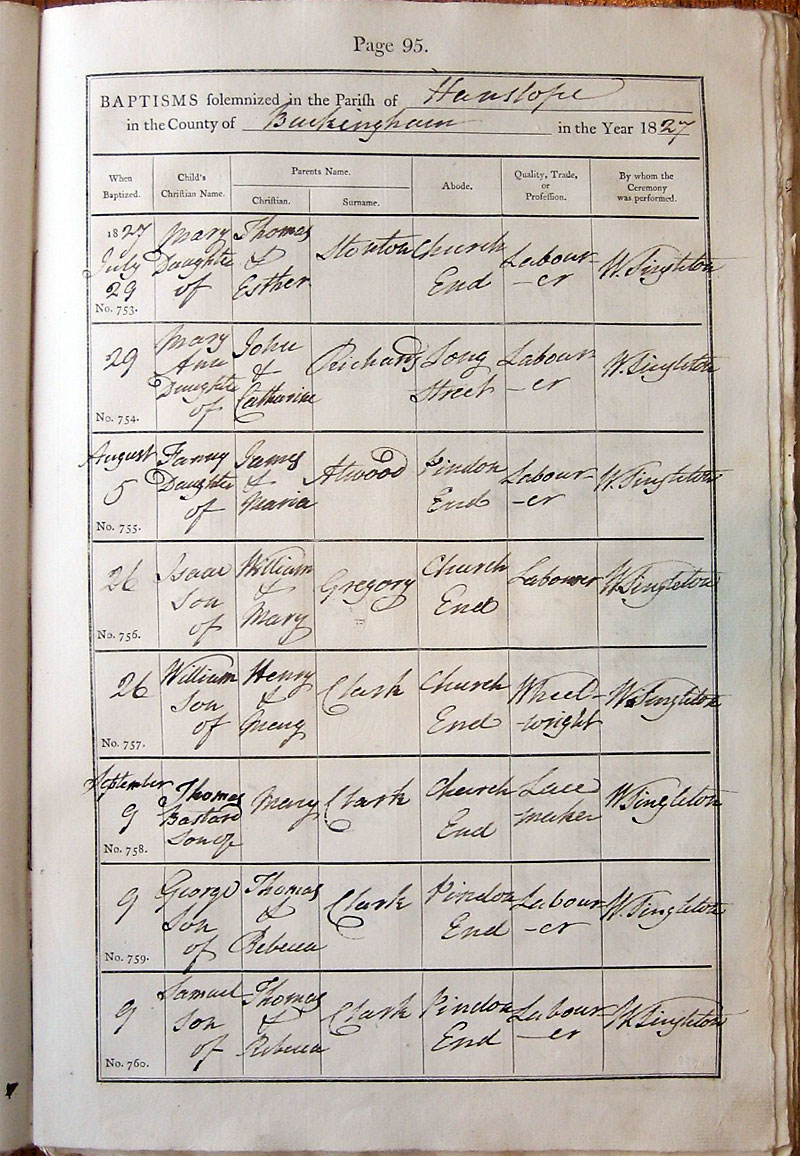 Page 95.
BAPTISMS solemnized in the Parish of Hanslope
in the County of Buckingham in the Year 1827
When Baptized. Child's Christian Name. Parents Name. Christian. Surname. Abode. Quality, Trade, or Profession. By whom the Ceremony was performed.
1827 Mary Thomas
July Daughter & Stonton Church Labour- W. Singleton
29 of Esther End -er
No. 753.
Mary John
29 Ann & Richards Long Labour W. Singleton
Daughter Catharine Street -er
of
No. 754.
August Fanny James Atwood Pindon Labour- W. Singleton
5 Daughter & End -er
of Maria
No. 755.
26 Isaac William Gregory Church Labourer W Singleton
Son & End
of Mary
No. 756.
26 William Henry Clark Church Wheel- W. Singleton
Son & End -wright
of Mary
No. 757.
September Thomas Mary Clark Church Lace W Singleton
9 Bastard End maker
Son of
No. 758.
9 George Thomas Clark Pindon Labour W. Singleton
Son & End -er
of Rebecca
No. 759.
9 Samuel Thomas Clark Pindon Labour W Singleton
Son & End -er
of Rebecca
No. 760.